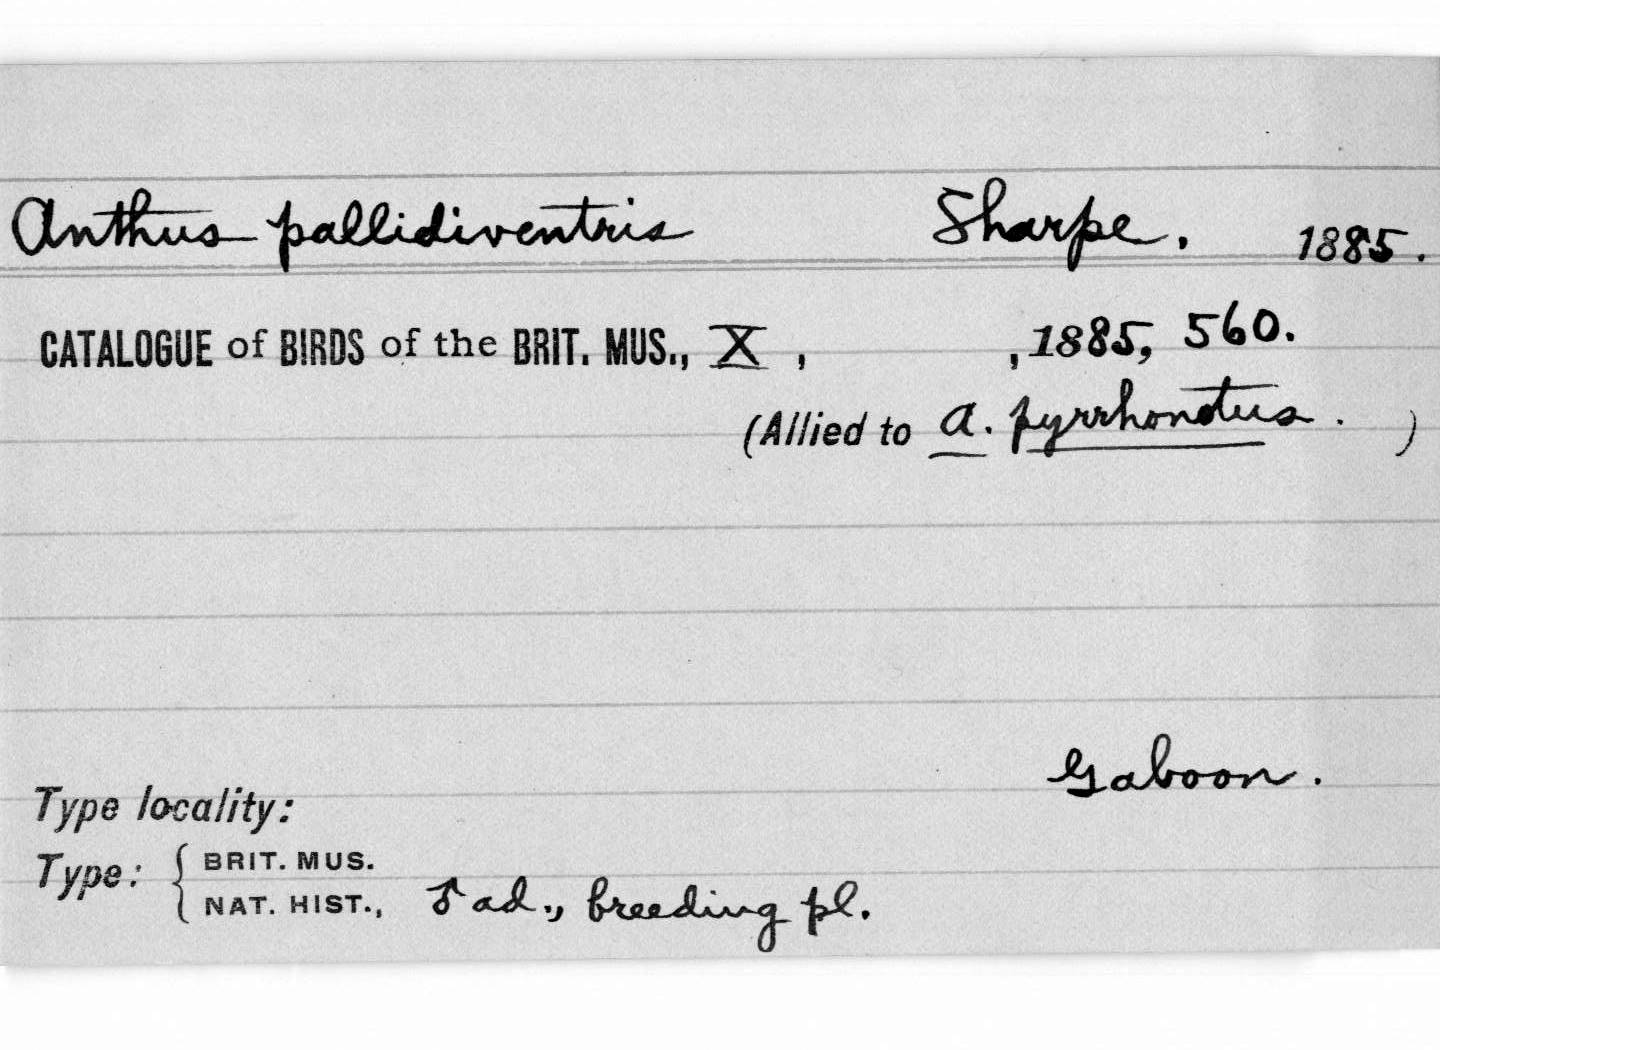 Anthus pallidiventris Sharpe. 1885.
CATALOGUE of BIRDS of the BRIT. MUS., X , , 1885, 560.
(Allied to A. pyrrhonotus. )
Gaboon.
Type locality:
Type: { BRIT. MUS.
NAT. HIST., ♂ ad., breeding pl.